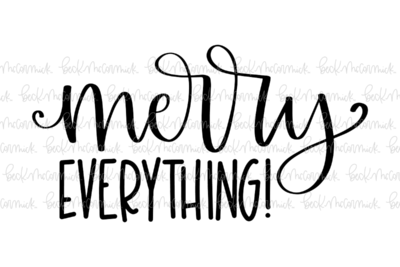 merry
EVERYTHING!